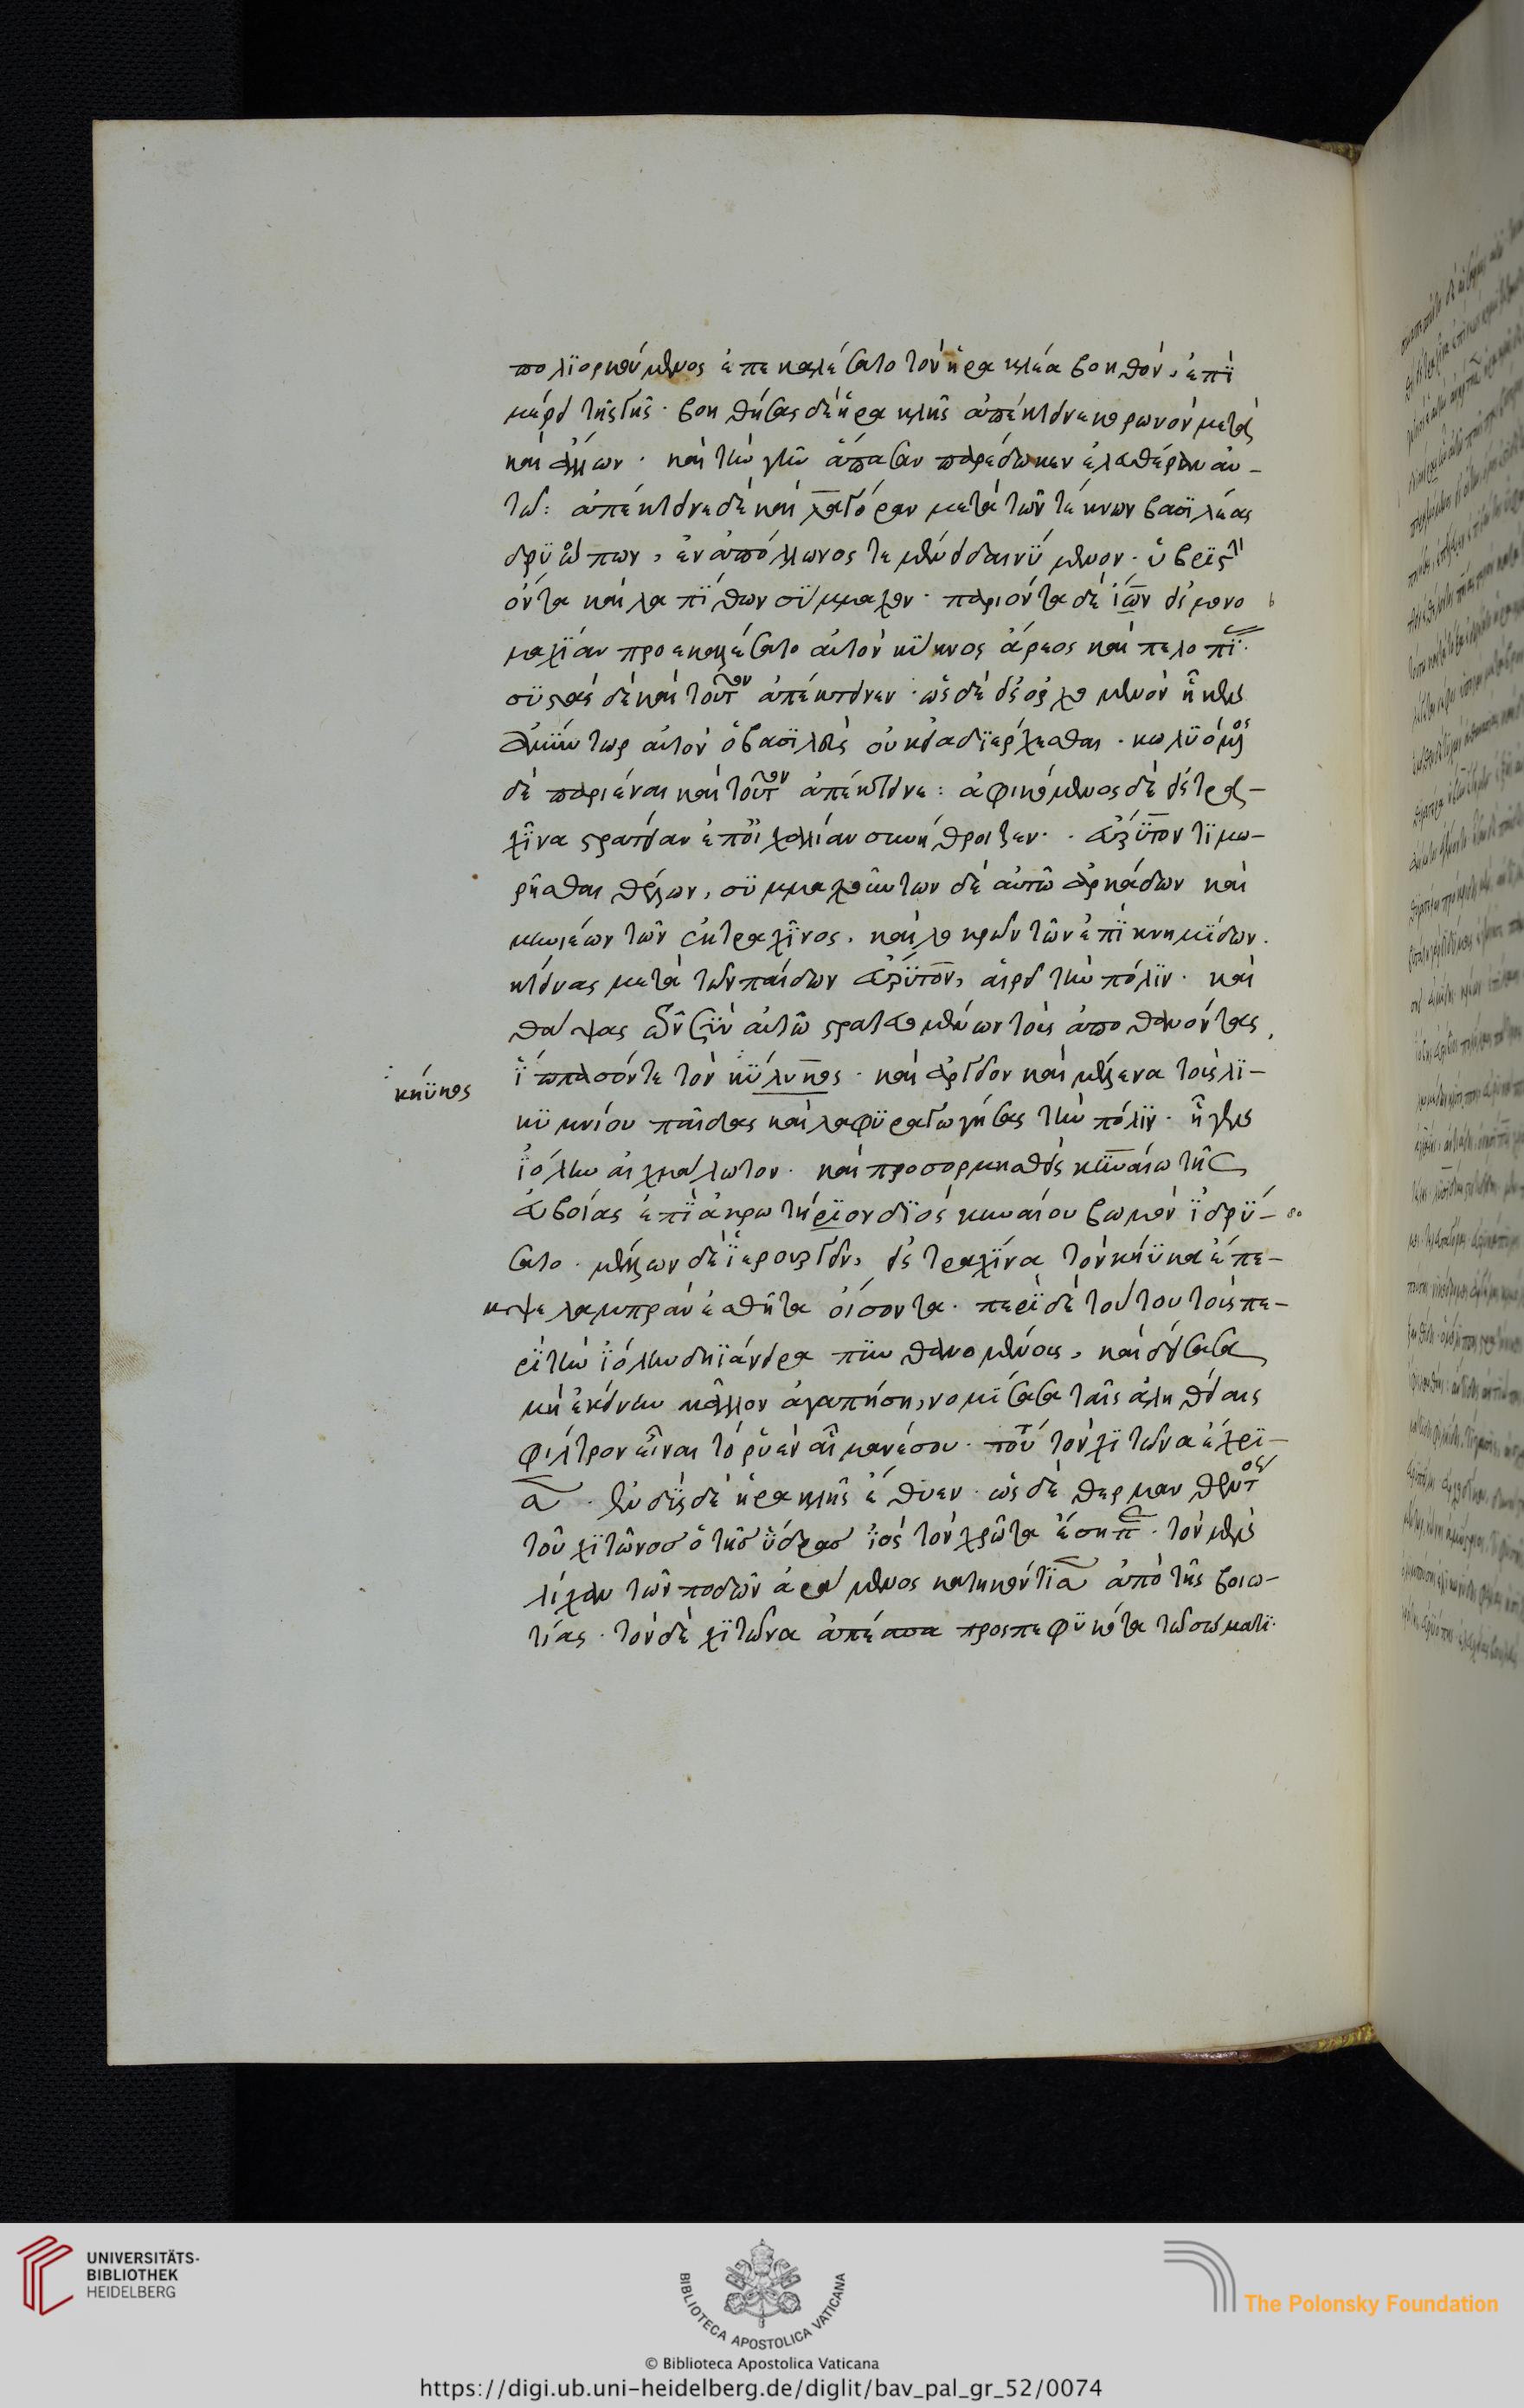 πολϊορκούμενος ἐπεκαλέσατο τὸν ἡρακλέα βοηθὸν, ἐπὶ
μέρει τῆς γῆς· βοηθήσας δὲ ἡρακλῆς ἀπέκτεινε κορωνὸν μετὰ
καὶ ἄλλων· καὶ τὴν γῆν ἅπασαν παρέδωκεν ἐλευθέραν αὐ-
τῶ: ἀπέκτεινε δὲ καὶ λαγόραν μετὰ τῶν τέκνων βασϊλέας
δρϋώπων, ἐν ἀπόλλωνος τεμένει δαινΰμενον· ὑβρϊστὴ
ὄντα καὶ λαπϊθων σΰμμαχον· παριόντα δὲ ἴων εἰς μονο
μαχίαν προεκαλέσατο αὐτὸν κΰκνος ἄρεος καὶ πελοπϊ·
σϋστὰς δὲ καὶ τοῦτον ἀπέκτεινεν· ὡς δὲ εἰς ὀρχομενὸν ἧκεν
ἀμύντωρ αὐτὸν ὁ βασϊλεὺς οὐκ εἴα διέρχεσθαι· κωλϋόμενος
δὲ παριέναι καὶ τοῦτον ἀπέκτεινε: ἀφικόμενος δὲ εἰς τρα-
χῖνα στρατείαν ἐπ' οἰχαλίαν συνήθροισεν· εὔρϋτον τϊμω-
ρῆσθαι θέλων, σϋμμαχούντων δὲ αὐτῶ ἀρκάδων καὶ
μηλιέων τῶν ἐκ τραχῖνος, καὶ λοκρῶν τῶν ἐπϊκνημϊδων.
κτείνας μετὰ τῶν παίδων εὔρϋτον, αἱρεῖ τὴν πόλϊν· καὶ
θάψας τῶν σὺν αὐτῶ στρατευσαμένων τοὺς ἀποθανόντας,
ἵππασόν τε τὸν κΰϋκος· καὶ ἀργεῖον καὶ μέλανα τοὺς λϊ-
κϋμνίου παῖδας καὶ λαφϋραγωγήσας τὴν πόλϊν· ἦγεν
ἰόλην αἰχμάλωτον· καὶ προσορμισθεὶς κηναίω τῆς
εὐβοίας ἐπὶ ἀκρωτήρϊον διὸς κηναίου βωμὸν ἱδρΰ-
σατο· μέλλων δὲ ἱερουργεῖν, εἰς τραχῖνα τὸν κήϋκα ἔπε-
μψε λαμπρὰν ἐσθῆτα οἴσοντα· περϊ δὲ τούτου τοὺς πε-
ρϊ τὴν ἰόλην δηϊάνειρα πϋνθανομένους, καὶ δείσασα
μὴ ἐκείνην μᾶλλον ἀγαπήση, νομίσασα ταῖς ἀληθείαις
φίλτρον εἶναι τὸ ῥυὲν αἷμα νέσου· τούτ τὸν χϊτῶνα ἔχρϊ-
σα· ἐνδὺς δὲ ἡρακλῆς ἔθυεν· ὡς δὲ θερμανθέντος
τοῦ χϊτῶνος ὁ τῆς ὕδρας ἰὸς τὸν χρῶτα ἔσηπε· τὸν μὲν
λίχαν τῶν ποδῶν ἀράμενος κατηκόντϊσα ἀπὸ τῆς βοιω-
τίας· τὸν δὲ χϊτῶνα ἀπέσπα προσπεφϋκότα τῶ σώματϊ·
κήϋκος
UNIVERSITÄTS-
BIBLIOTHEK
HEIDELBERG
BIBLIOTECA APOSTOLICA VATICANA
© Biblioteca Apostolica Vaticana
The Polonsky Foundation
https://digi.ub.uni-heidelberg.de/diglit/bav_pal_gr_52/0074